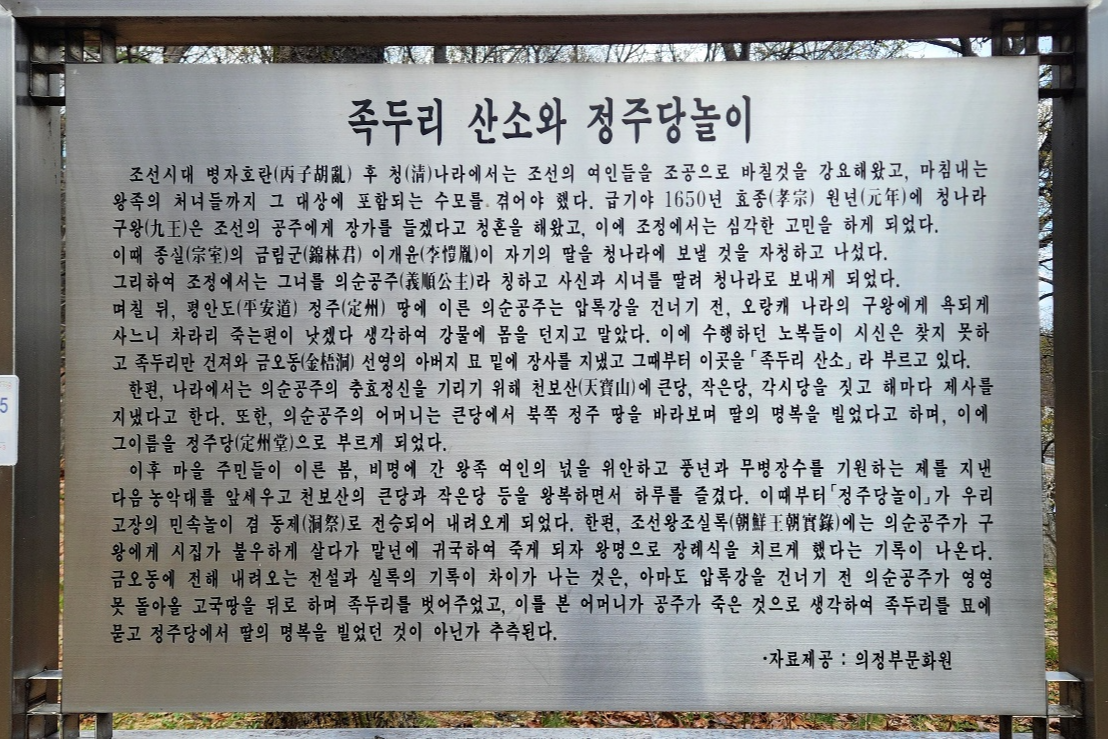 족두리 산소와 정주당놀이
조선시대 병자호란(丙子胡亂) 후 청(淸)나라에서는 조선의 여인들을 조공으로 바칠것을 강요해왔고, 마침내는
왕족의 처녀들까지 그 대상에 포함되는 수모를 겪어야 했다. 급기야 1650년 효종(孝宗) 원년(元年)에 청나라
구왕(九王)은 조선의 공주에게 장가를 들겠다고 청혼을 해왔고, 이에 조정에서는 심각한 고민을 하게 되었다.
이때 종실(宗室)의 금림군(錦林君) 이개윤(李愷胤)이 자기의 딸을 청나라에 보낼 것을 자청하고 나섰다.
그리하여 조정에서는 그녀를 의순공주(義順公主)라 칭하고 사신과 시녀를 딸려 청나라로 보내게 되었다.
며칠 뒤, 평안도(平安道) 정주(定州) 땅에 이른 의순공주는 압록강을 건너기 전, 오랑캐 나라의 구왕에게 욕되게
사느니 차라리 죽는편이 낫겠다 생각하여 강물에 몸을 던지고 말았다. 이에 수행하던 노복들이 시신은 찾지 못하
고 족두리만 건져와 금오동(金梧洞) 선영의 아버지 묘 밑에 장사를 지냈고 그때부터 이곳을 「족두리 산소」라 부르고 있다.
한편, 나라에서는 의순공주의 충효정신을 기리기 위해 천보산(天寶山)에 큰당, 작은당, 각시당을 짓고 해마다 제사를
지냈다고 한다. 또한, 의순공주의 어머니는 큰당에서 북쪽 정주 땅을 바라보며 딸의 명복을 빌었다고 하며, 이에
그이름을 정주당(定州堂)으로 부르게 되었다.
이후 마을 주민들이 이른 봄, 비명에 간 왕족 여인의 넋을 위안하고 풍년과 무병장수를 기원하는 제를 지낸
다음 농악대를 앞세우고 천보산의 큰당과 작은당 등을 왕복하면서 하루를 즐겼다. 이때부터 「정주당놀이」가 우리
고장의 민속놀이 겸 동제(洞祭)로 전승되어 내려오게 되었다. 한편, 조선왕조실록(朝鮮王朝實錄)에는 의순공주가 구
왕에게 시집가 불우하게 살다가 말년에 귀국하여 죽게 되자 왕명으로 장례식을 치르게 했다는 기록이 나온다.
금오동에 전해 내려오는 전설과 실록의 기록이 차이가 나는 것은, 아마도 압록강을 건너기 전 의순공주가 영영
못 돌아올 고국땅을 뒤로 하며 족두리를 벗어주었고, 이를 본 어머니가 공주가 죽은 것으로 생각하여 족두리를 묘에
묻고 정주당에서 딸의 명복을 빌었던 것이 아닌가 추측된다.
·자료제공 : 의정부문화원
5